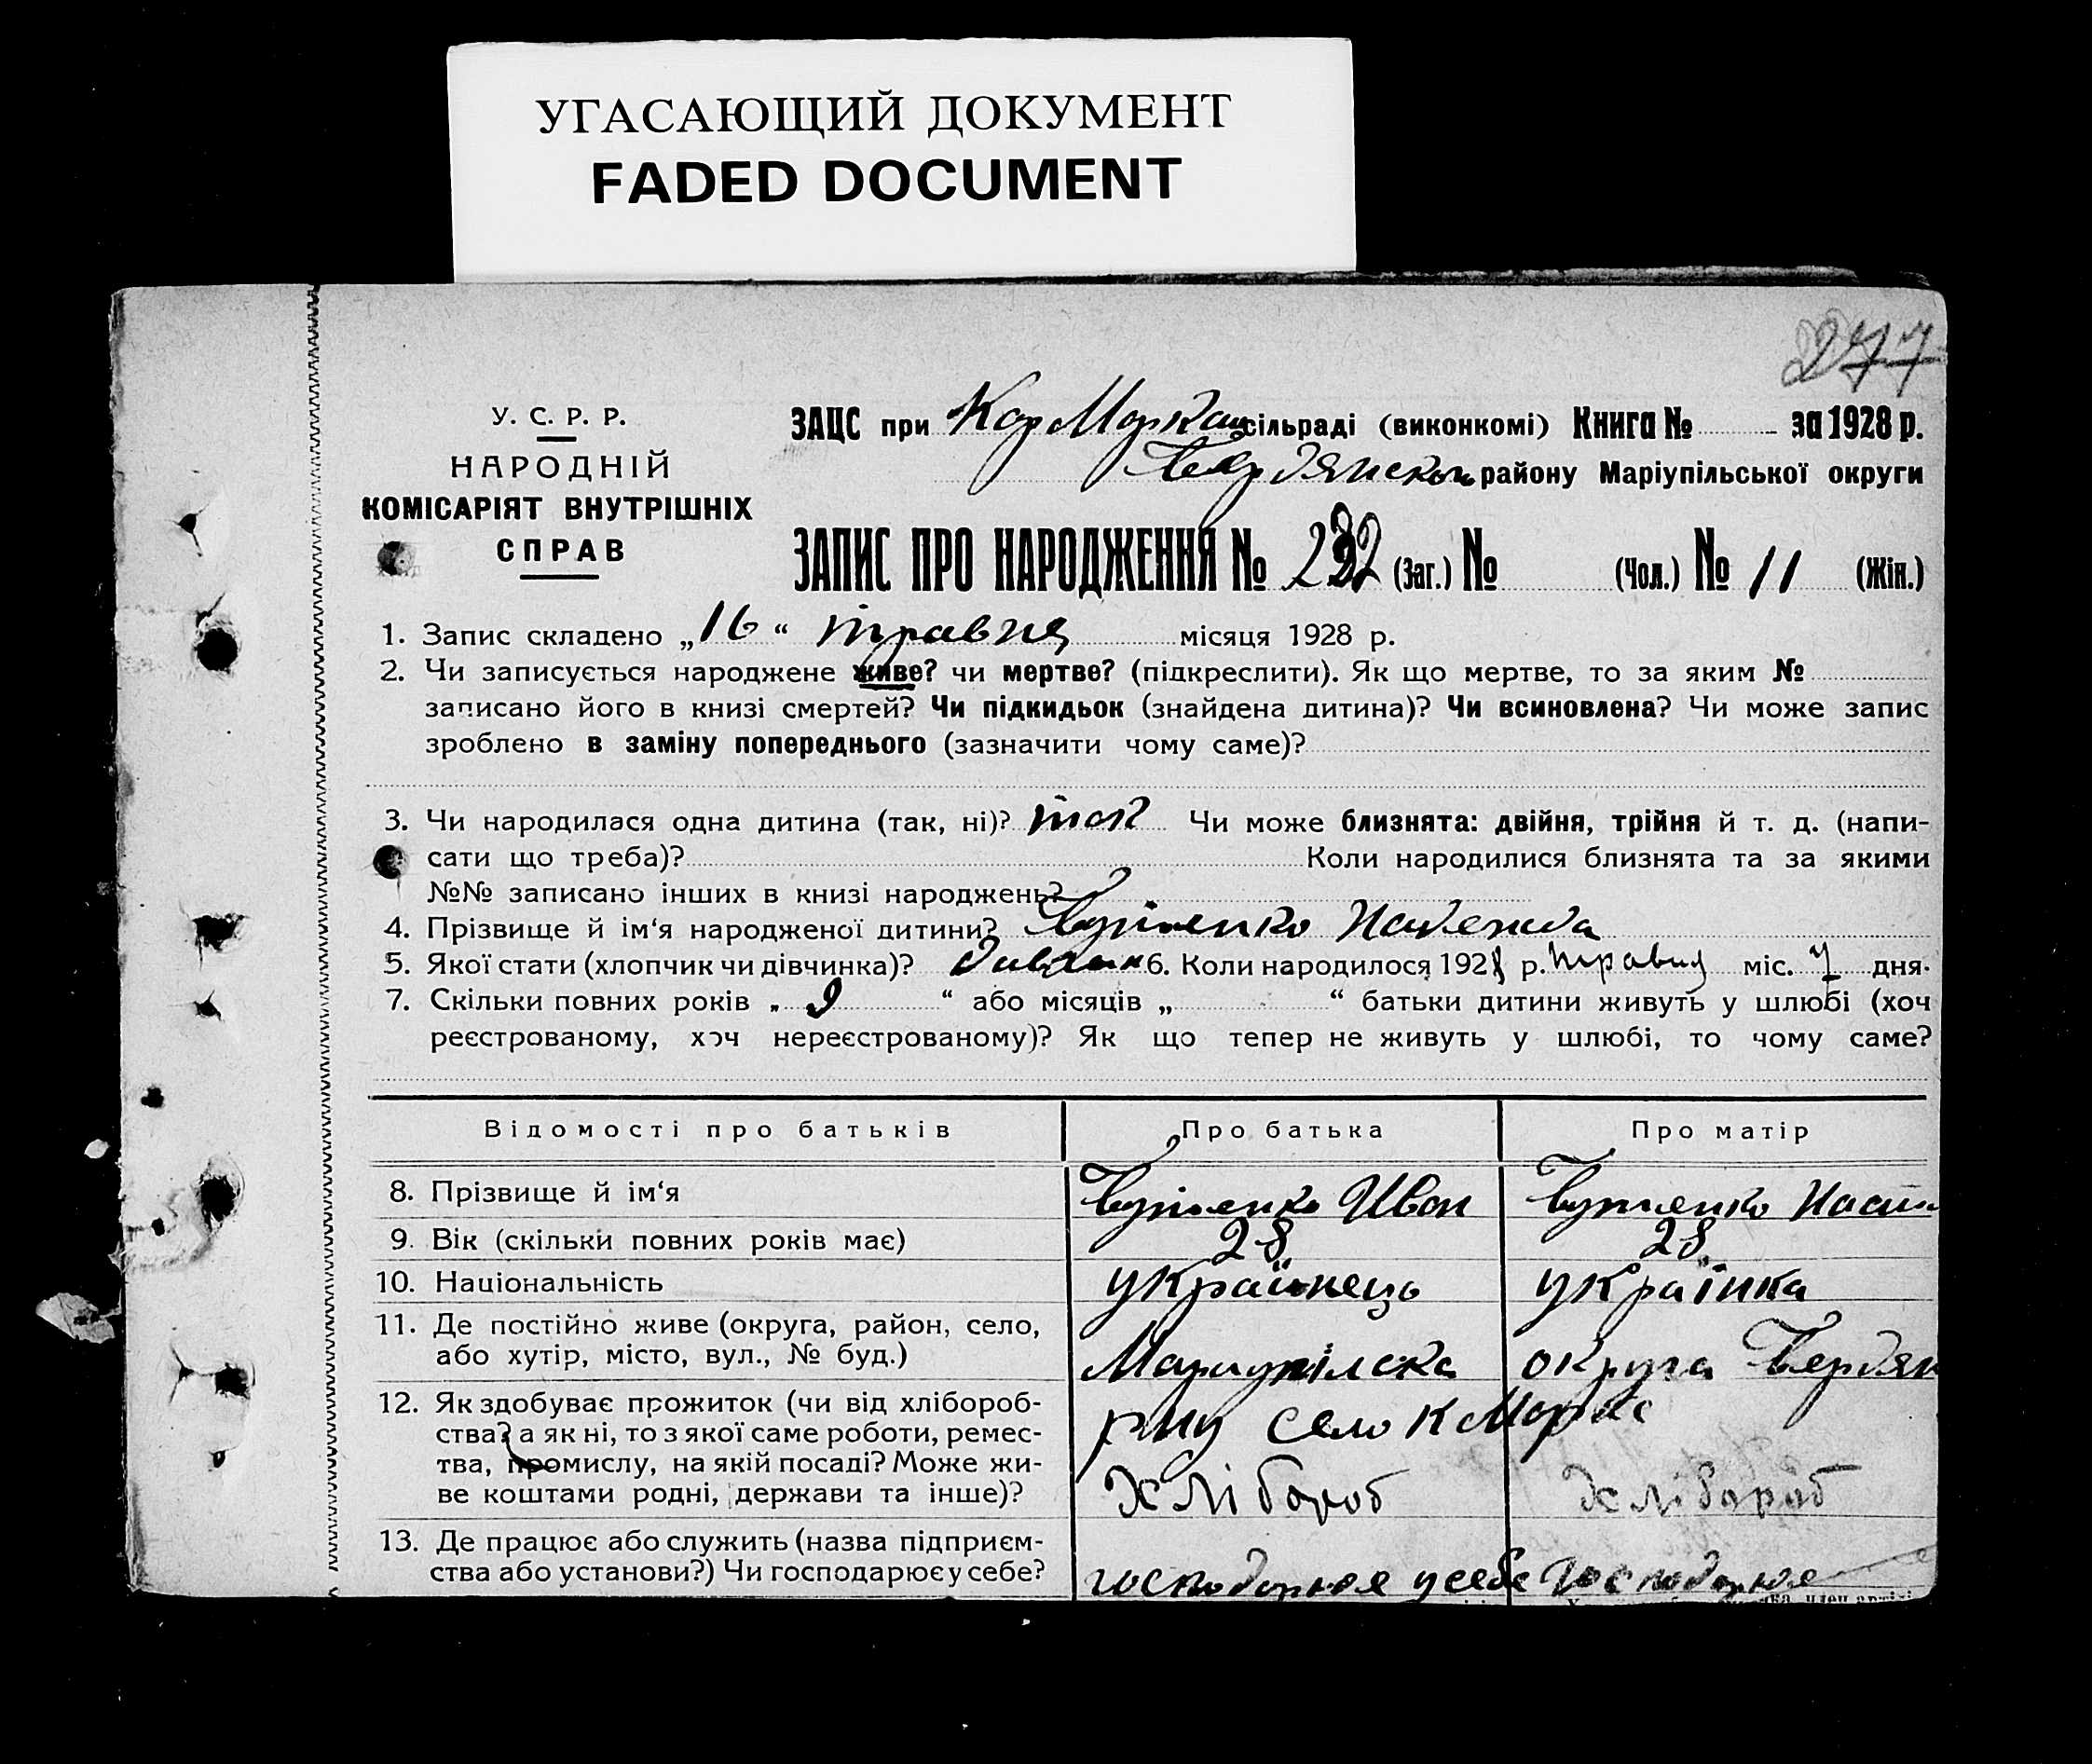 УГАСАЮЩИЙ ДОКУМЕНТ
FADED DOCUMENT
277
У. С. Р. Р.
НАРОДНІЙ
КОМІСАРІЯТ ВНУТРІШНІХ
СПРАВ
ЗАЦС при сільраді (виконкомі) Книга № за 1928 р.
району Маріупільської округи
ЗАПИС ПРО НАРОДЖЕННЯ № 232 (Заг.) № (Чол.) № 11 (Жін.)
1. Запис складено „16“ травня місяця 1928 р.
2. Чи записується народжене живе? чи мертве? (підкреслити). Як що мертве, то за яким №
записано його в книзі смертей? Чи підкидьок (знайдена дитина)? Чи всиновлена? Чи може запис
зроблено в заміну попереднього (зазначити чому саме)?
3. Чи народилася одна дитина (так, ні)? так Чи може близнята: двійня, трійня й т. д. (напи-
сати що треба)? Коли народилися близнята та за якими
№№ записано інших в книзі народжень?
4. Прізвище й ім‘я народженої дитини? Надежда
5. Якої стати (хлопчик чи дівчинка)? 6. Коли народилося 1928 р. травня міс. 7 дня.
7. Скільки повних років „ 9 “ або місяців „ “ батьки дитини живуть у шлюбі (хоч
реєстрованому, хоч нереєстрованому)? Як що тепер не живуть у шлюбі, то чому саме?
Відомості про батьків Про батька Про матір
8. Прізвище й ім‘я Иван
9. Вік (скільки повних років має) 28 28
10. Національність українець українка
11. Де постійно живе (округа, район, село,
або хутір, місто, вул., № буд.) округа Бердян
12. Як здобуває прожиток (чи від хлібороб- село
ства? а як ні, то з якої саме роботи, ремес-
тва, промислу, на якій посаді? Може жи-
ве коштами родні, держави та інше)? Хлібороб хлібороб
13. Де працює або служить (назва підприєм-
ства або установи?) Чи господарює у себе? господарює у себе господарює